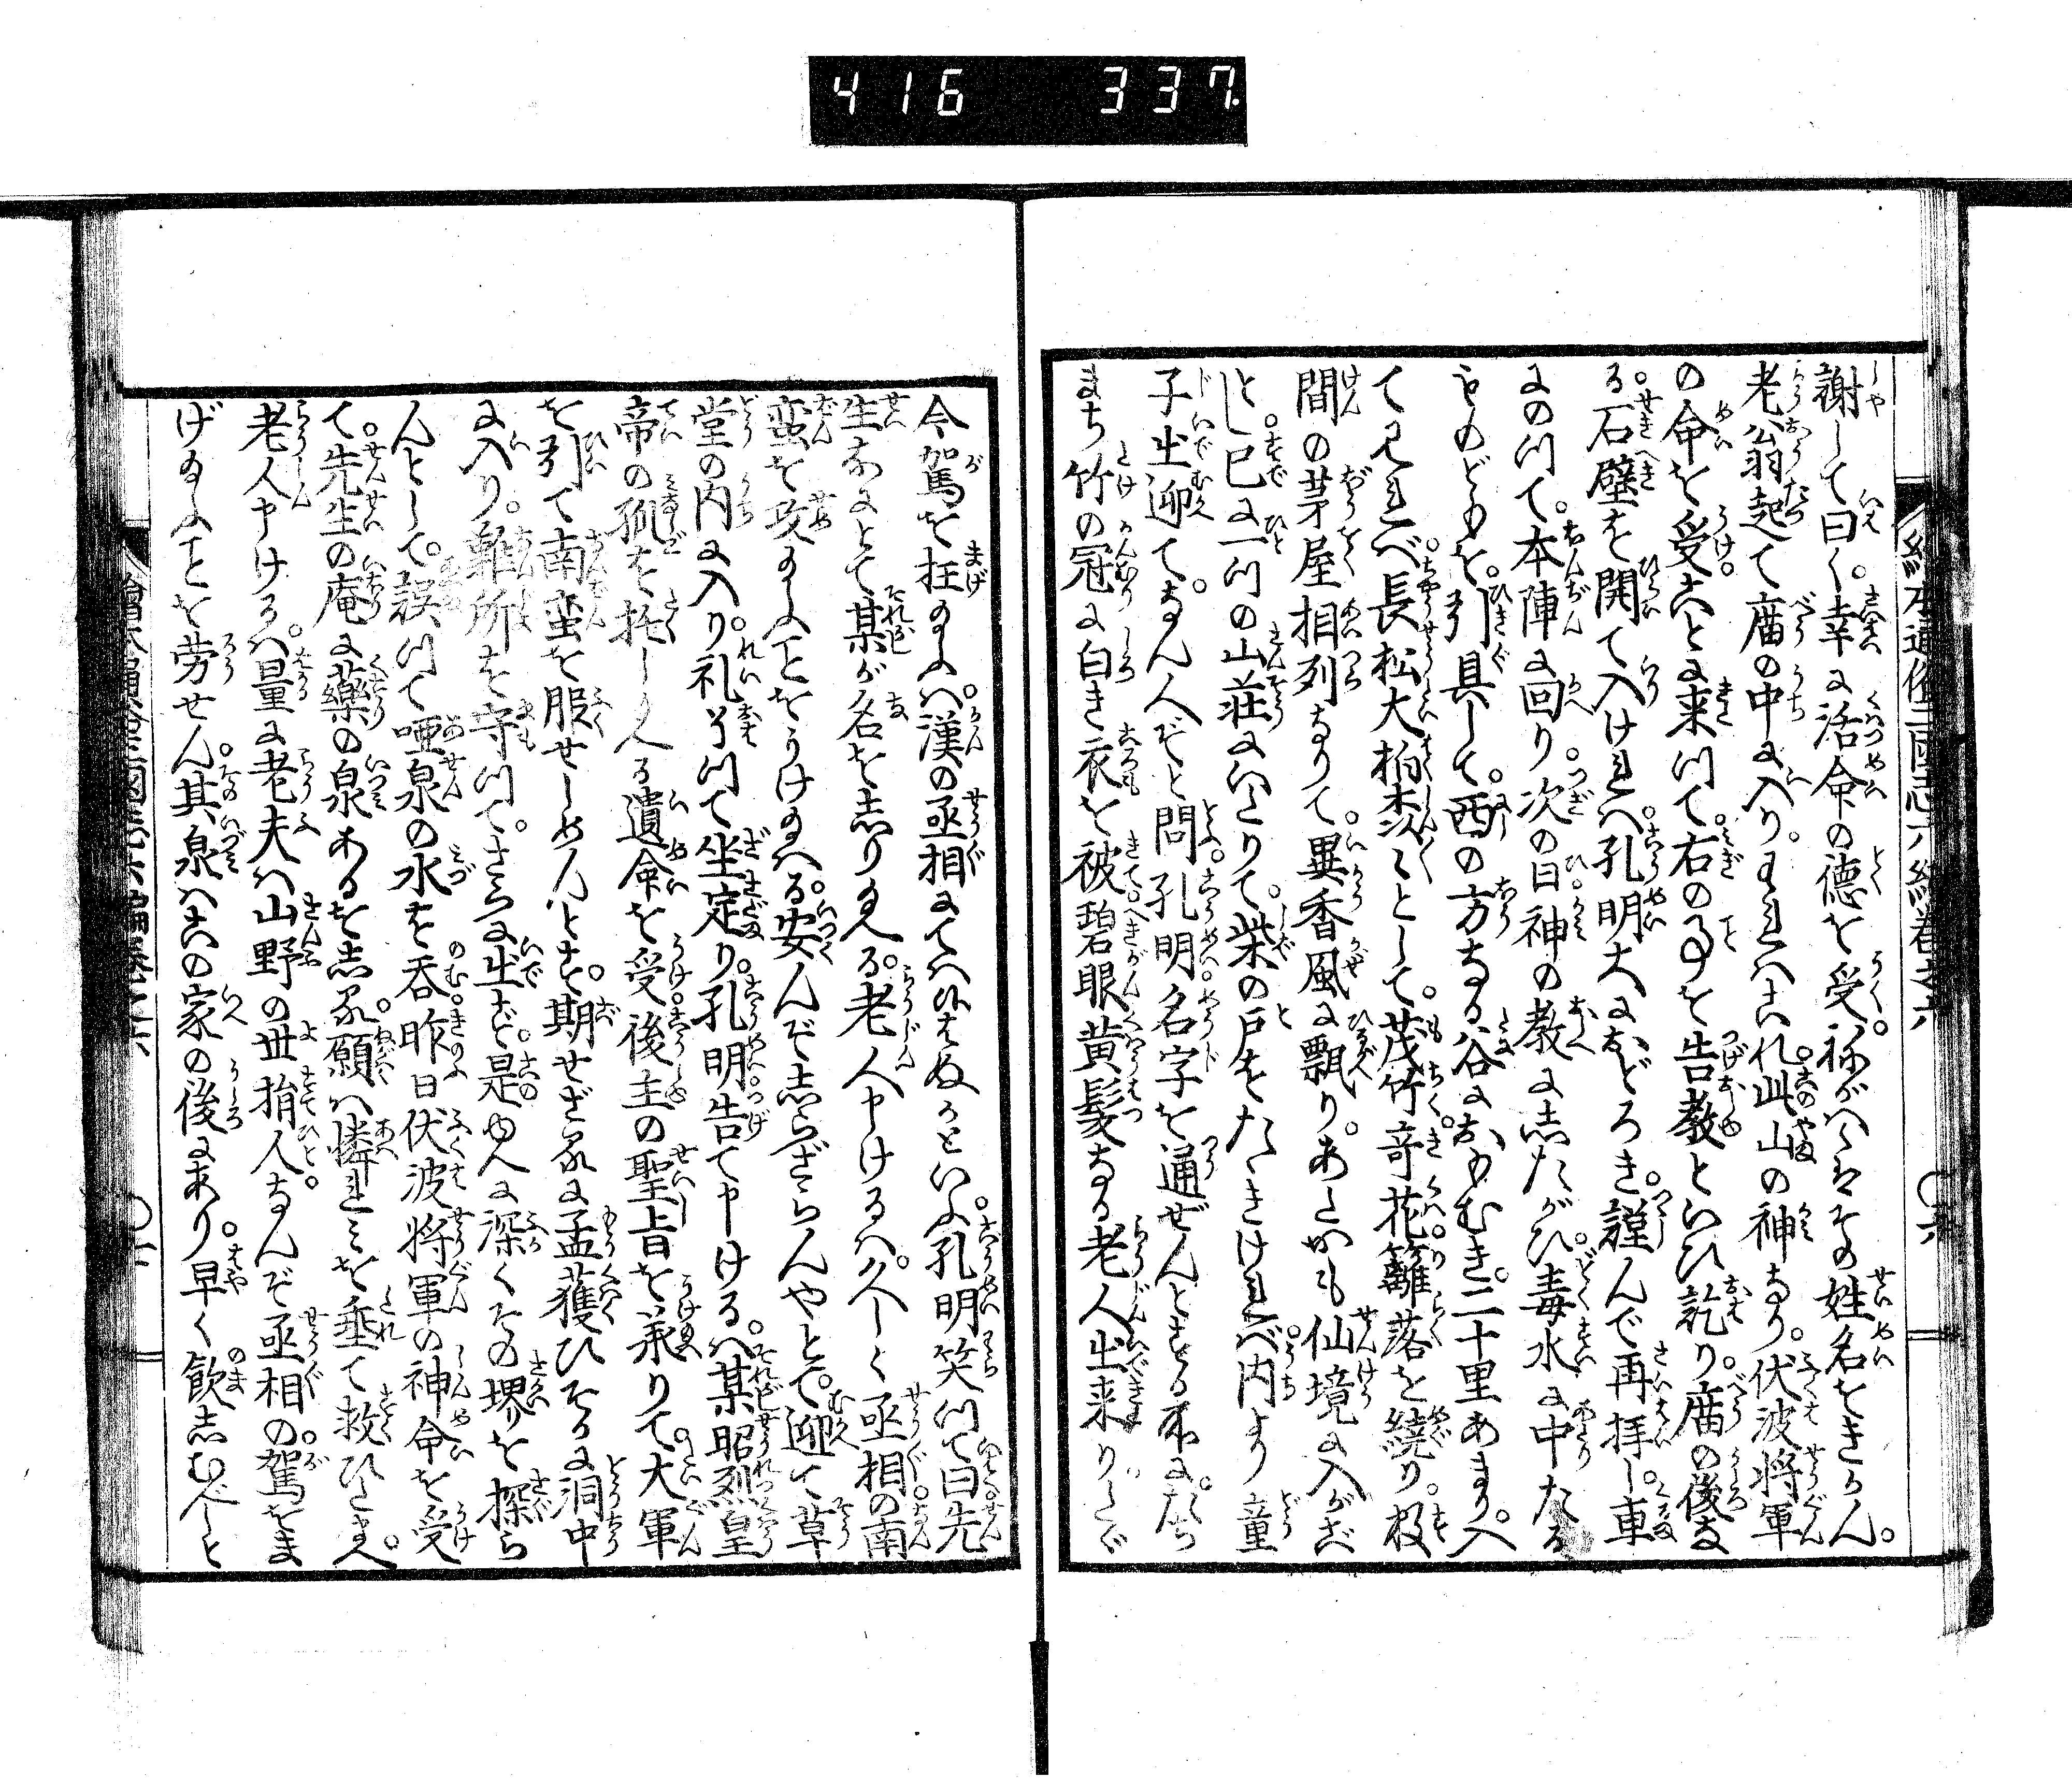 416 337
謝して曰く。幸に活命の德を受く。祢がハくハその姓名をきかん。
老公翁起て庿の中に入り。われハこれ此山の神なり。伏波将軍
の命を受ことに来つて。右の事を告教といひ訖り。庿の後な
る。石壁を開て入けれハ。孔明大におどろき。謹んで再拝し。車
にのつて。本陣に回り。次の日神の教にしたがひ。毒水に中たる
ものどもを。引具して。西の方なる谷におもむき。二十里あまり入
て見れべ。長松大柏森々として。茂竹奇花籬落を繞り。数
間の茅屋相列なりて。異香風に飄り。あたかも仙境に入がご
とし。已に一つの山荘にいたりて。柴の戸をたゝきけれべ。内より童
子出迎て。なん人ぞと問。孔明名字を通ぜんとする所に。たち
まち竹の冠に白き衣を被。碧眼黄髪なる老人出来りたゞ
繪本通俗三國志六編巻之六
○六
今駕を抂給ふハ。漢の丞相にてハ候ハぬかといふ。孔明笑つて曰。先
生なにとて某が名をしり給へる。老人申けるハ。久しく丞相の南
蛮を攻給ふことをうけ給へる。安んぞしらざらんやとて。迎て草
堂の内に入り。礼おハつて坐定り。孔明告て申けるハ。某昭烈皇
帝の孤を托し給へる遺命を受。後主の聖旨を承りて。大軍
を引て南蛮を服せしめんとす。期せざるに孟獲ひそかに洞中
に入り。難所を守つて。さらに出ず。是ゆへに深くその堺を探ら
んとして。誤つて啞泉の水を呑。昨日伏波将軍の神命を受
て。先生の庵に藥の泉あるをしる。願ハ憐れミを垂て救ひたまへ。
老人申けるハ。量に老夫ハ山野の世捐人。なんぞ丞相の駕をま
げ給ふことを労せん。其泉ハこの家の後にあり。早く飲しむべしと